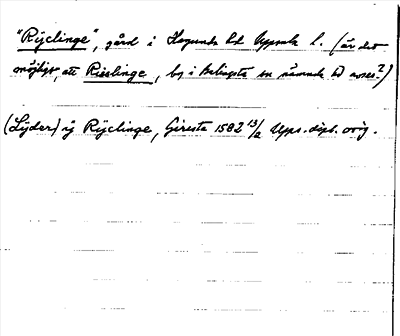 "Rÿclinge", gård i Hagunda hd Uppsala l. (är det
möjligt, att Risslinge, by i Balingsta sn nämnda hd avses?)
(Lÿder) ÿ Rÿclinge, Giresta 1582 13/2 Upps. dipl. orig.